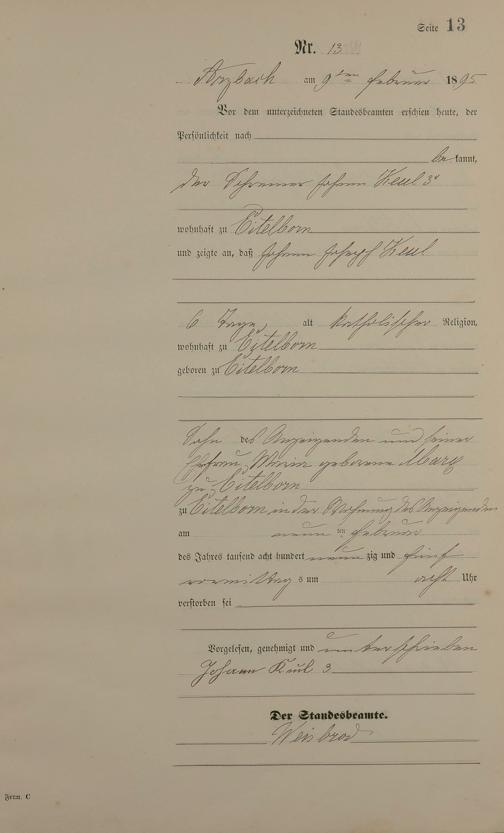 Seite 13
Nr. 13
Arzbach am 9ten Februar 1895
Vor dem unterzeichneten Standesbeamten erschien heute, der
Persönlichkeit nach
be kannt,
der Schreiner Johann Keul 3r
wohnhaft zu Eitelborn
und zeigte an, daß Johann Joseph Keul
6 Tage, alt katholischer Religion,
wohnhaft zu Eitelborn
geboren zu Eitelborn
Sohn des Anzeigenden und seiner
Ehefrau Maria geborene Marx
zu Eitelborn
zu Eitelborn in der Wohnung des Anzeigenden
am neun ten Februar
des Jahres tausend acht hundert neun zig und fünf
vormittag s um acht Uhr
verstorben sei
Vorgelesen, genehmigt und unterschrieben
Johann Keul 3
Der Standesbeamte.
Weisbrod
Form. C